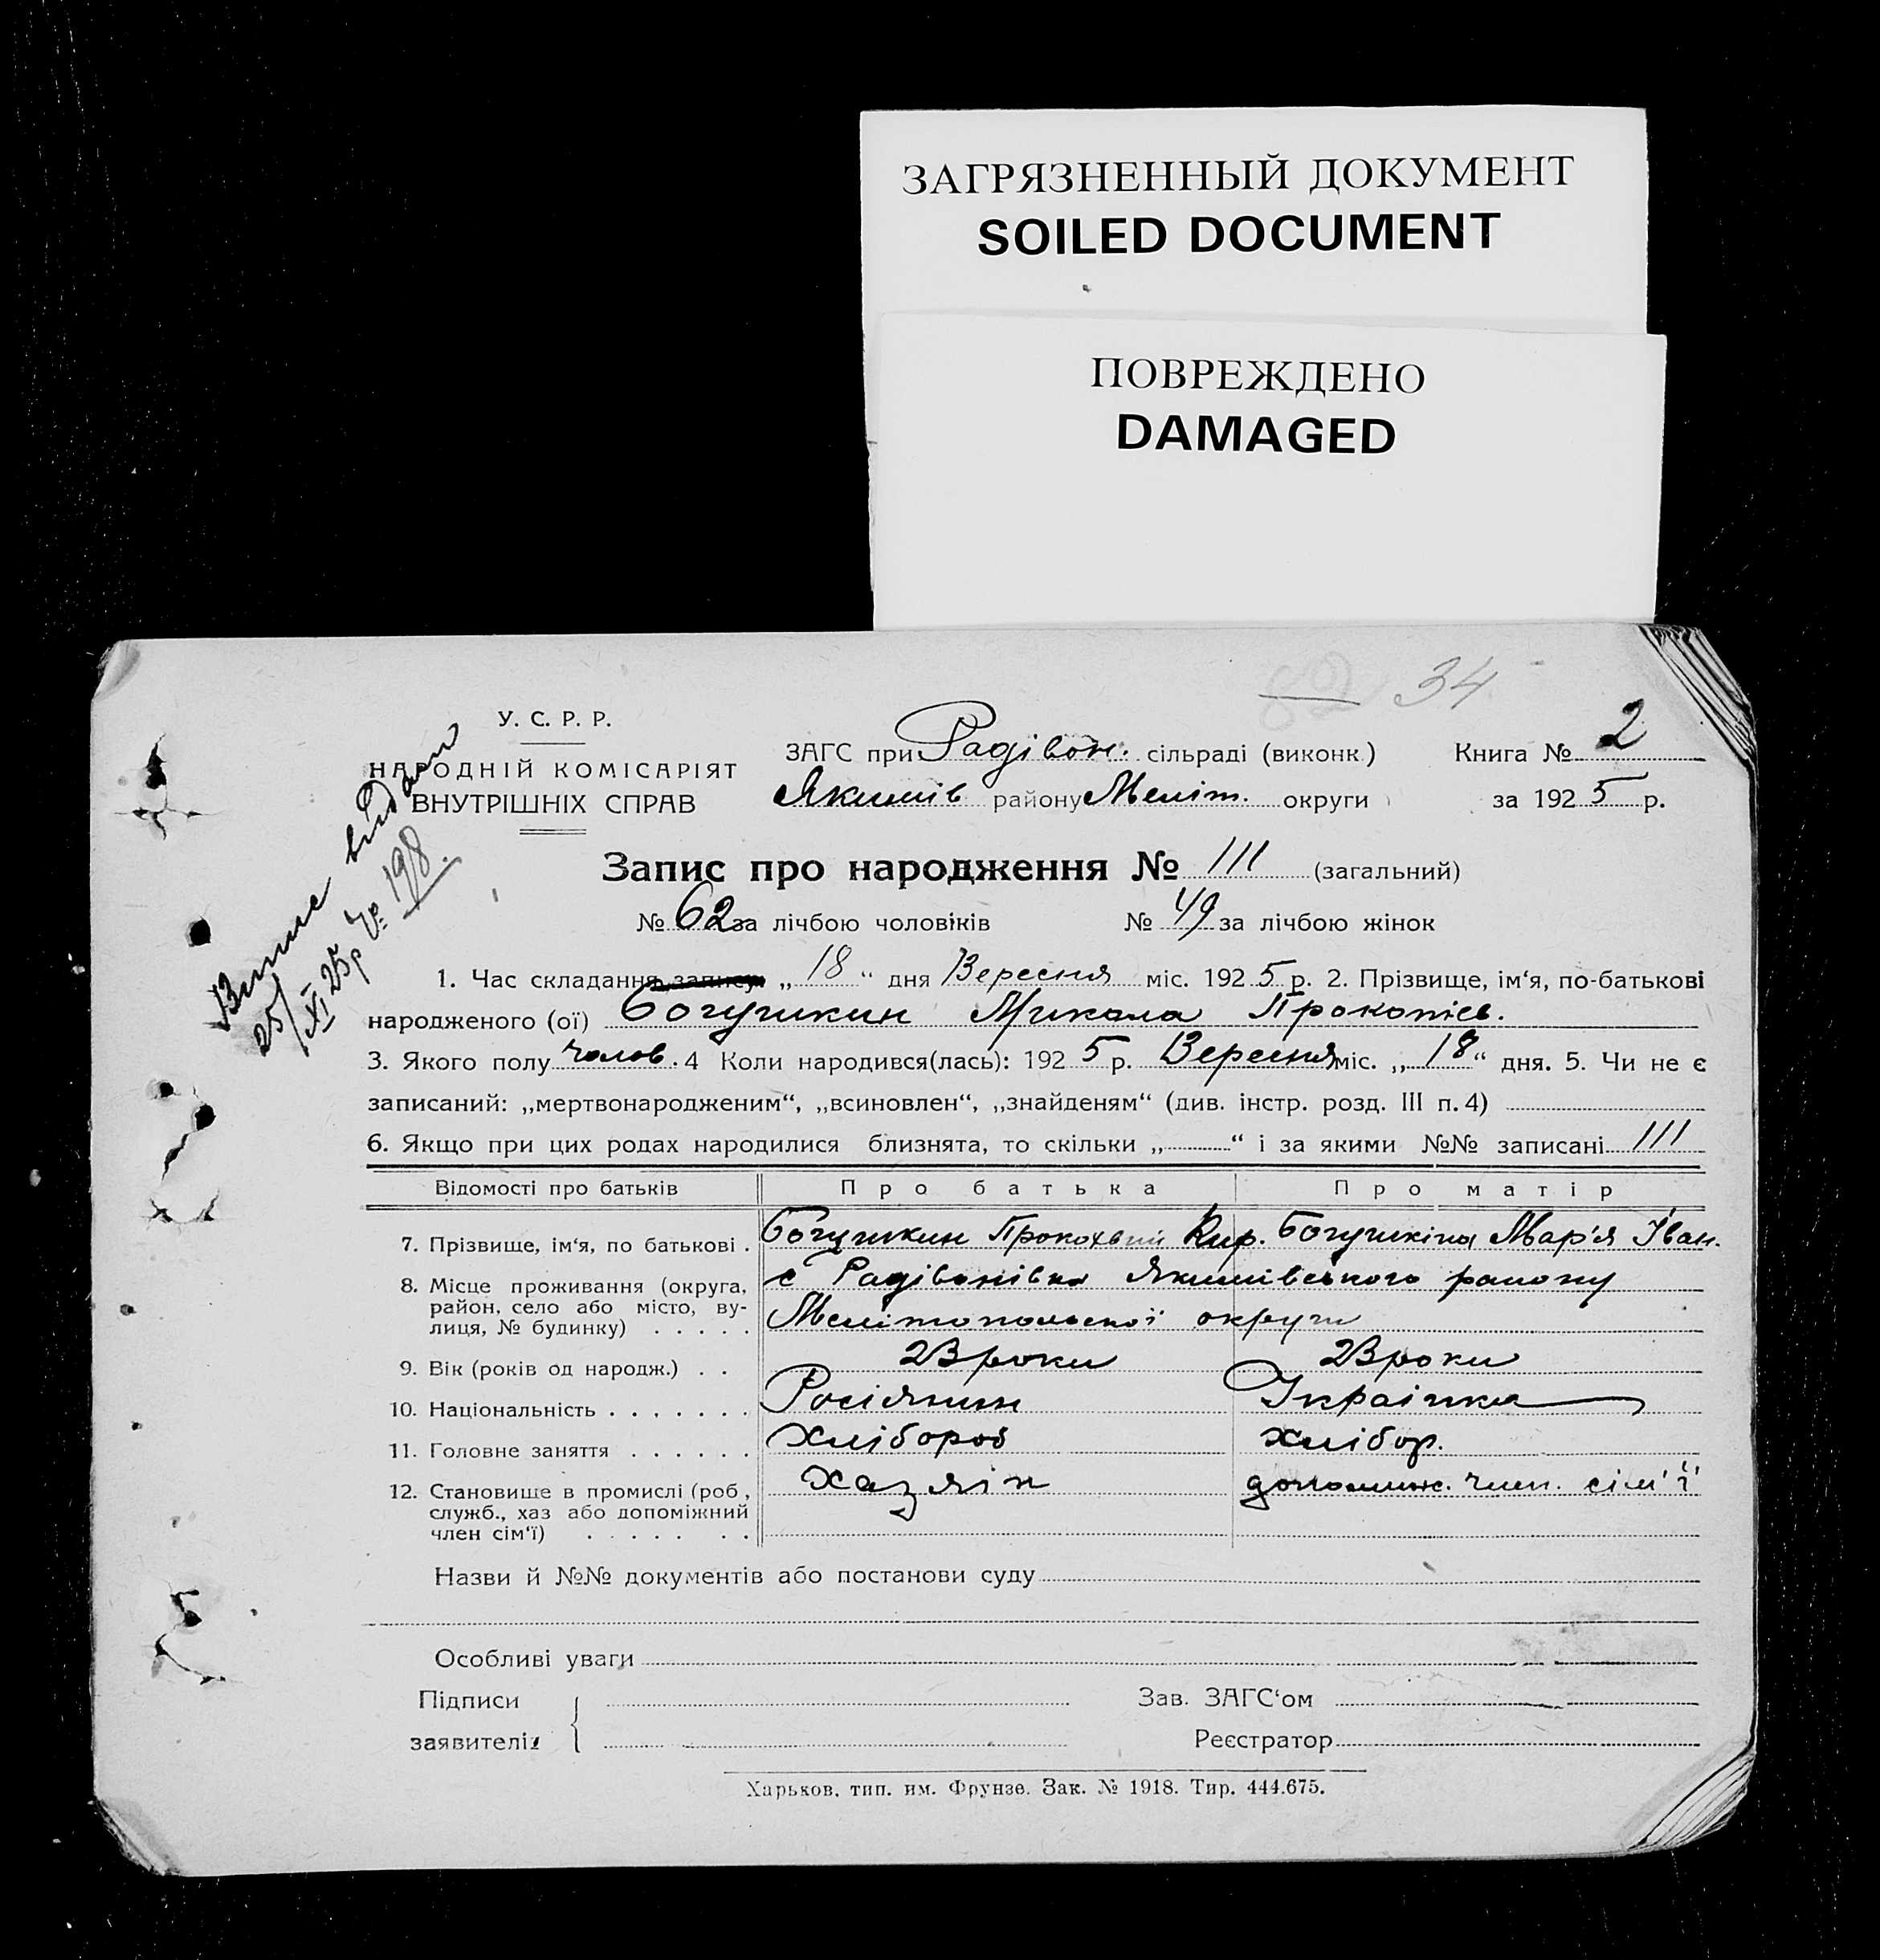 ЗАГРЯЗНЕННЫЙ ДОКУМЕНТ
SOILED DOCUMENT
ПОВРЕЖДЕНО
DAMAGED
82 34
У. С. Р. Р.
НАРОДНІЙ КОМІСАРІЯТ
ВНУТРІШНІХ СПРАВ
ЗАГС при Радівон. сільраді (виконк.) Книга № 2
Якимів району Меліт. округи за 1925 р.
Випис видано
25/XI 25р № 198.
Запис про народження № 111 (загальний)
№ 62 за лічбою чоловіків № 49 за лічбою жінок
1. Час складання запису „18“ дня Вересня міс. 1925 р. 2. Прізвище, ім‘я, по-батькові
народженого (ої) Богушкин Микола Прокопієв.
3. Якого полу чолов. 4 Коли народився(лась): 1925 р. Вересня міс. „18“ дня. 5. Чи не є
записаний: „мертвонародженим“, „всиновлен“, „знайденям“ (див. інстр. розд. III п. 4)
6. Якщо при цих родах народилися близнята, то скільки „ “ і за якими №№ записані 111
Відомості про батьків Про батька Про матір
7. Прізвище, ім‘я, по батькові . Богушкин Прокохвий Кир. Богушкіна Мар'я Іван.
8. Місце проживання (округа, район, село або місто, ву-лиця, № будинку) . . . . . с Радівонівка Якимівського району
Мелітопольської округи
9. Вік (років од народж.) . . 23 роки 23 роки
10. Національність . . . . . . . Росіянин Українка
11. Головне заняття . . . . . . Хлібороб хлібор.
12. Становище в промислі (роб., служб., хаз або допоміжний член сім‘ї) . . . . . . . Хазяін допоміж. член. сім'ї
Назви й №№ документів або постанови суду
Особливі уваги
Підписи Зав. ЗАГС‘ом
заявителів Реєстратор
Харьков, тип. им. Фрунзе. Зак. № 1918. Тир. 444.675.